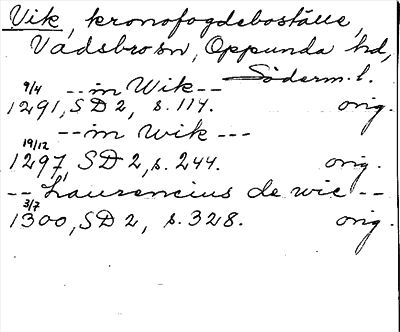 Vik, kronofogdeboställe,
Vadsbro sn, Oppunda hd,
Söderm. l.
9/4 -- in Wik --
1291, SD 2, s. 114. orig.
-- in wik ---
19/12
1297, SD 2, s. 244. orig.
-- Laurencius de wic --
3/7
1300, SD 2, s. 328. orig.